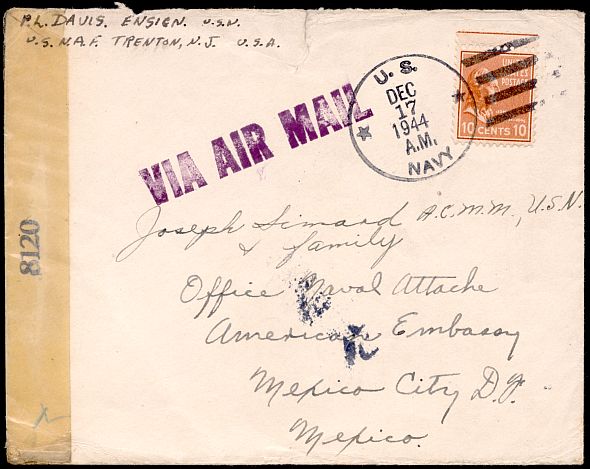 P.L. DAVIS. ENSIGN. U.S.N.
U.S. N.A.F. TRENTON, N.J. U.S.A.
VIA AIR MAIL
U. S.
DEC
17
1944
A.M.
NAVY
UNITED
STATES
POSTAGE
10 CENTS 10
8120
Joseph Simard A.C.M.M., U.S.N.
& family
Office Naval Attache
American Embassy
Mexico City D.F.
Mexico.